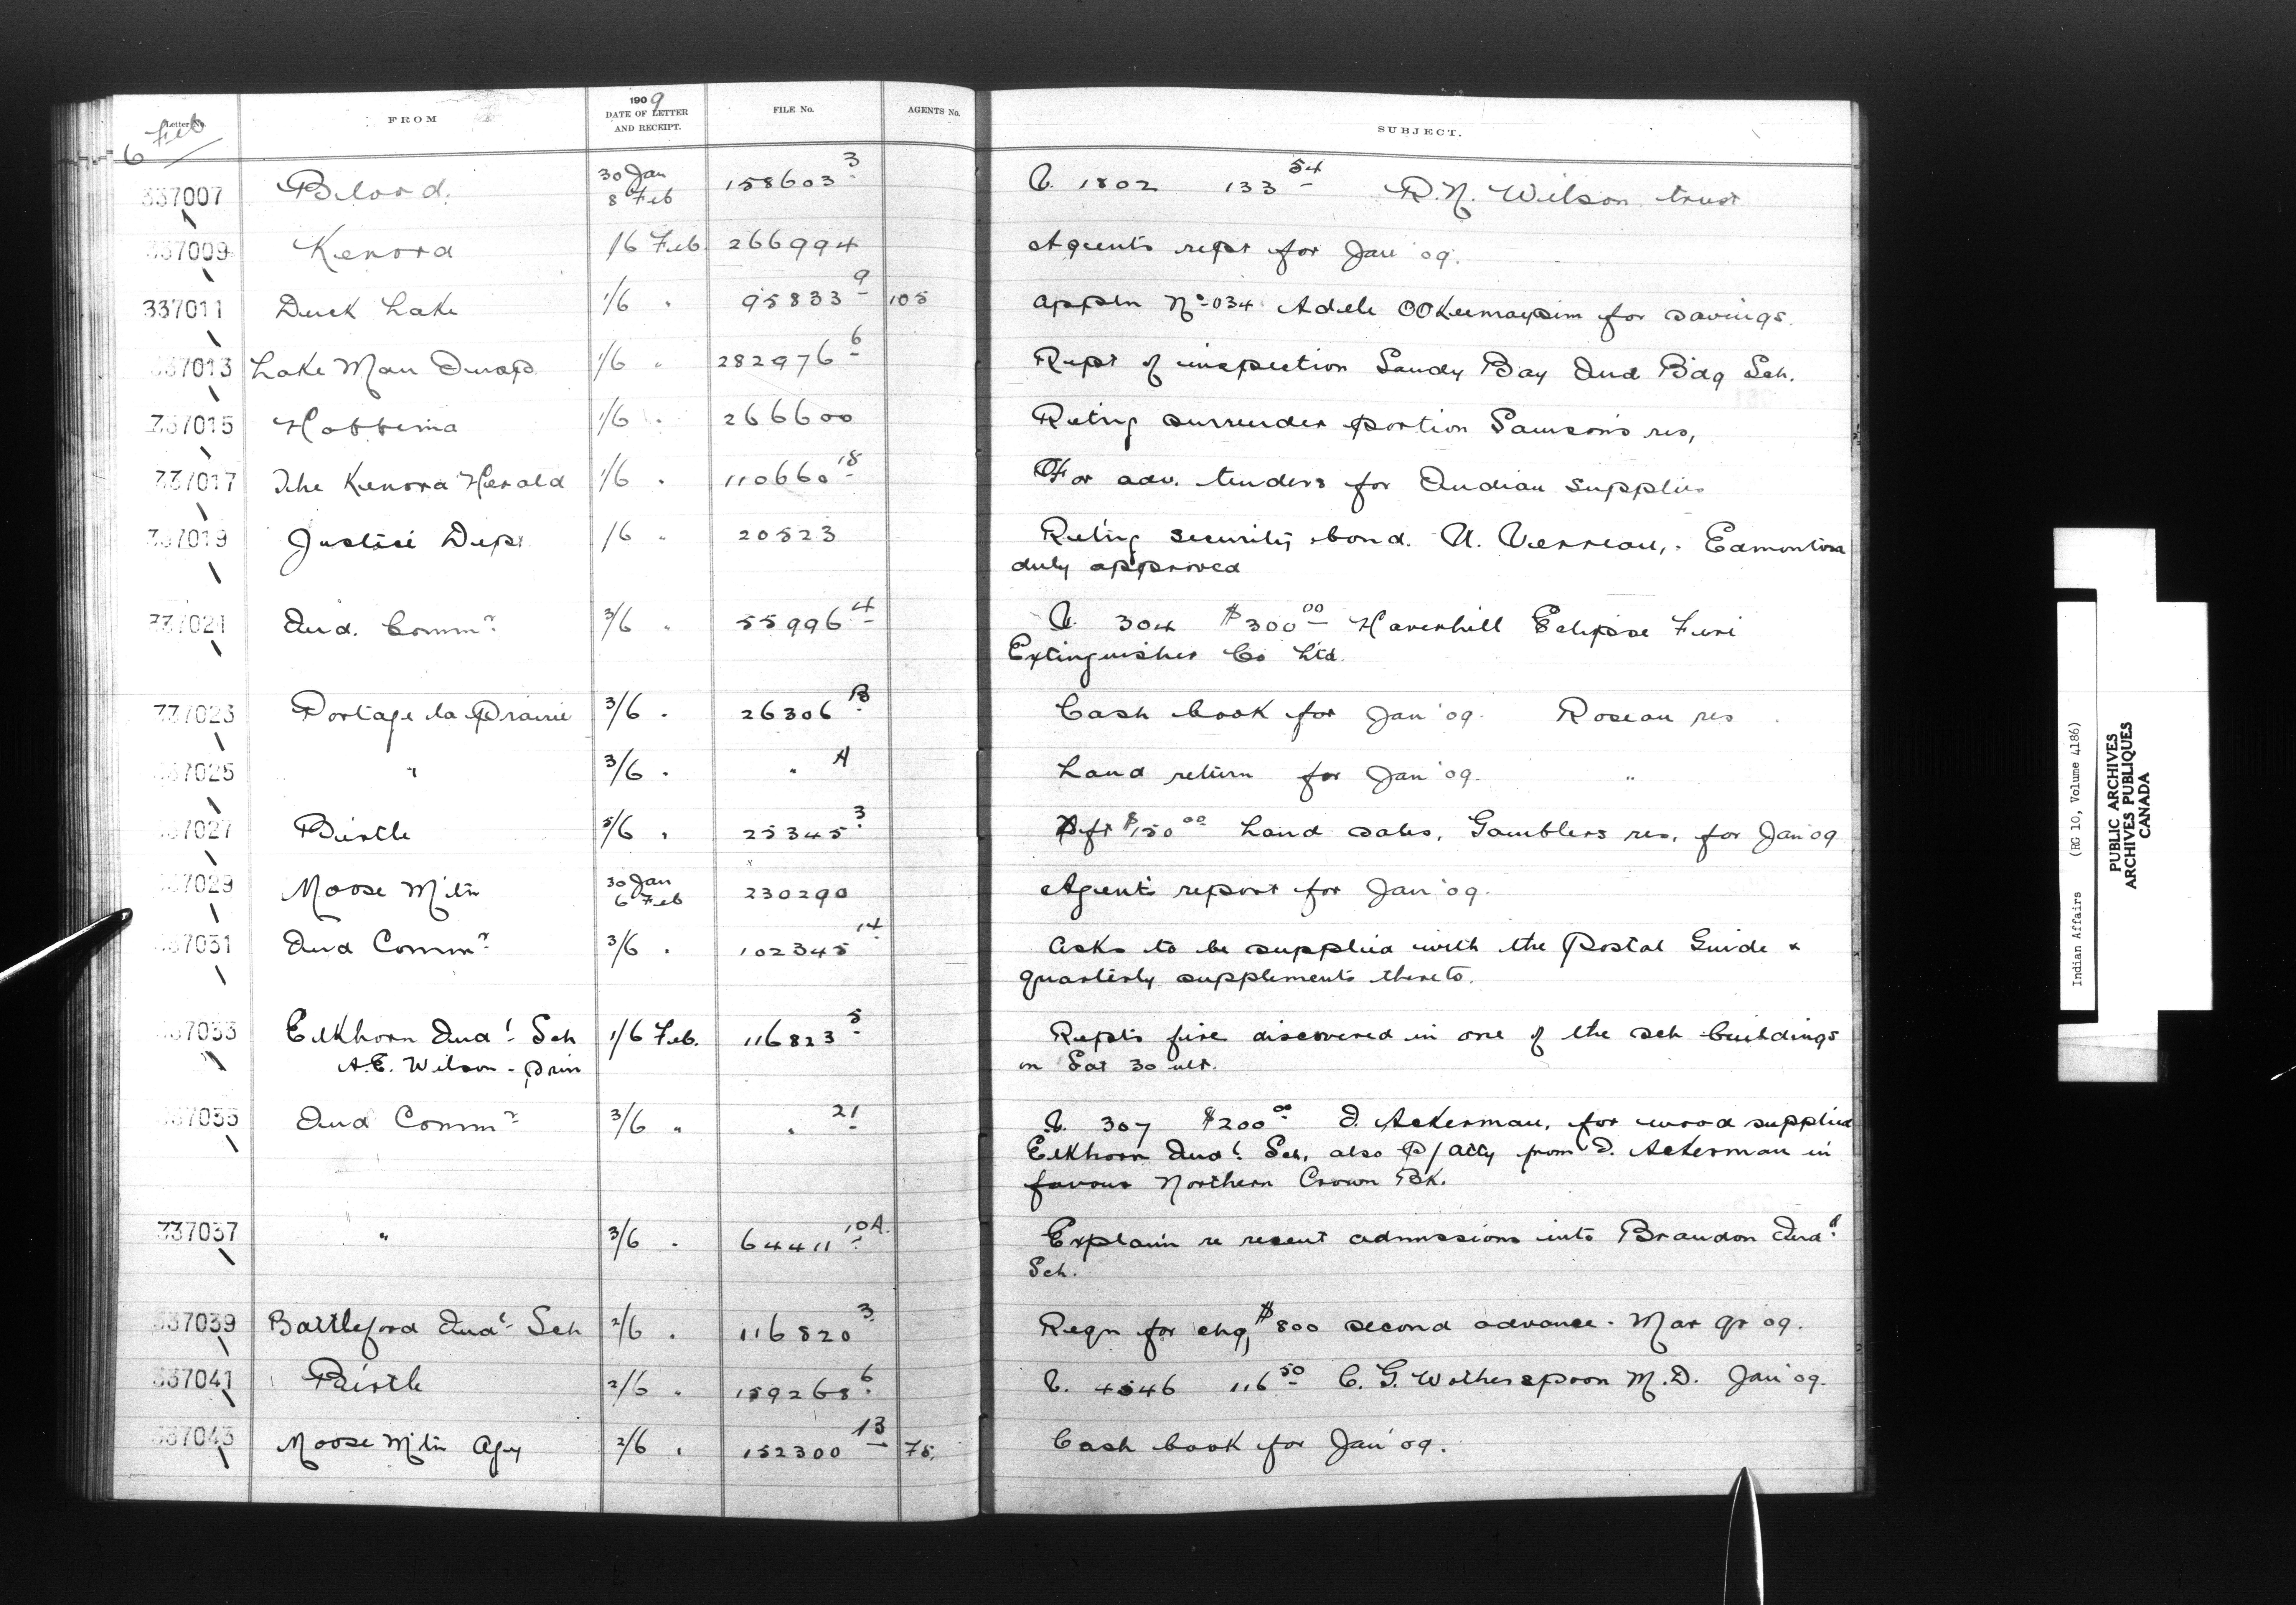 Letter No. FROM 1909 DATE OF LETTER AND RECEIPT. FILE No. AGENTS No. SUBJECT.
6 Feb
337007 Blood. 30 Jan 8 Feb 158603-3 V. 1802 133 54 R.N. Wilson trust
337009 Kenora 1/6 Feb. 266994 Agents rept for Jan '09.
337011 Duck Lake 1/6 " 95833-9 105 Appln No 034 Adele for savings.
337013 Lake Man Insp 1/6 " 282976-6 Rept of inspection Sandy Bay Ind Bdg Sch.
337015 Hobbema 1/6 " 266600 Retng surrender portion Samson's res,
337017 The Kenora Herald 1/6 " 110660-18 For adv. tenders for Indian supplies
337019 Justice Dept 1/6 " 20523 Retng security bond. U. Verreau, Edmonton
duly approved
337021 Ind. Commr 3/6 " 55996-4 V. 304 $300 00 Haverhill Eclipse Fire
Extinguisher Co Ltd.
337023 Portage la Prairie 3/6 " 26306-B Cash book for Jan '09. Roseau res
337025 " 3/6 " " A Land return for Jan '09. "
337027 Birtle 5/6 " 25345-3 Dft $150 00 Land sales, Gamblers res, for Jan '09
337029 Moose Mtn 30 Jan 6 Feb 230290 Agents report for Jan '09.
337031 Ind Commr 3/6 " 102345-14 Asks to be supplied with the Postal Guide &
quarterly supplements thereto.
337033 Elkhorn Indl Sch 1/6 Feb. 116823-5 Repts fire discovered in one of the sch buildings
A.E. Wilson - prin on Sat 30 ult.
337035 Ind Commr 3/6 " " 21 V. 307 $200 00 D. Ackerman, for wood supplied
Elkhorn Indl Sch, also P/Atty from D. Ackerman in
favour Northern Crown Bk.
337037 " 3/6 " 64411-10A. Explain re recent admissions into Brandon Indl
Sch.
337039 Battleford Indl Sch 2/6 " 116820-3 Reqn for chq, $800 second advance - Mar qr 09.
337041 Birtle 2/6 " 159268-6 V. 4546 116 50 C. G. Wotherspoon M.D. Jan '09.
337043 Moose Mtn Agy 2/6 " 152300-13 75. Cash book for Jan '09.
Indian Affairs (RG 10, Volume 4186)
PUBLIC ARCHIVES
ARCHIVES PUBLIQUES
CANADA